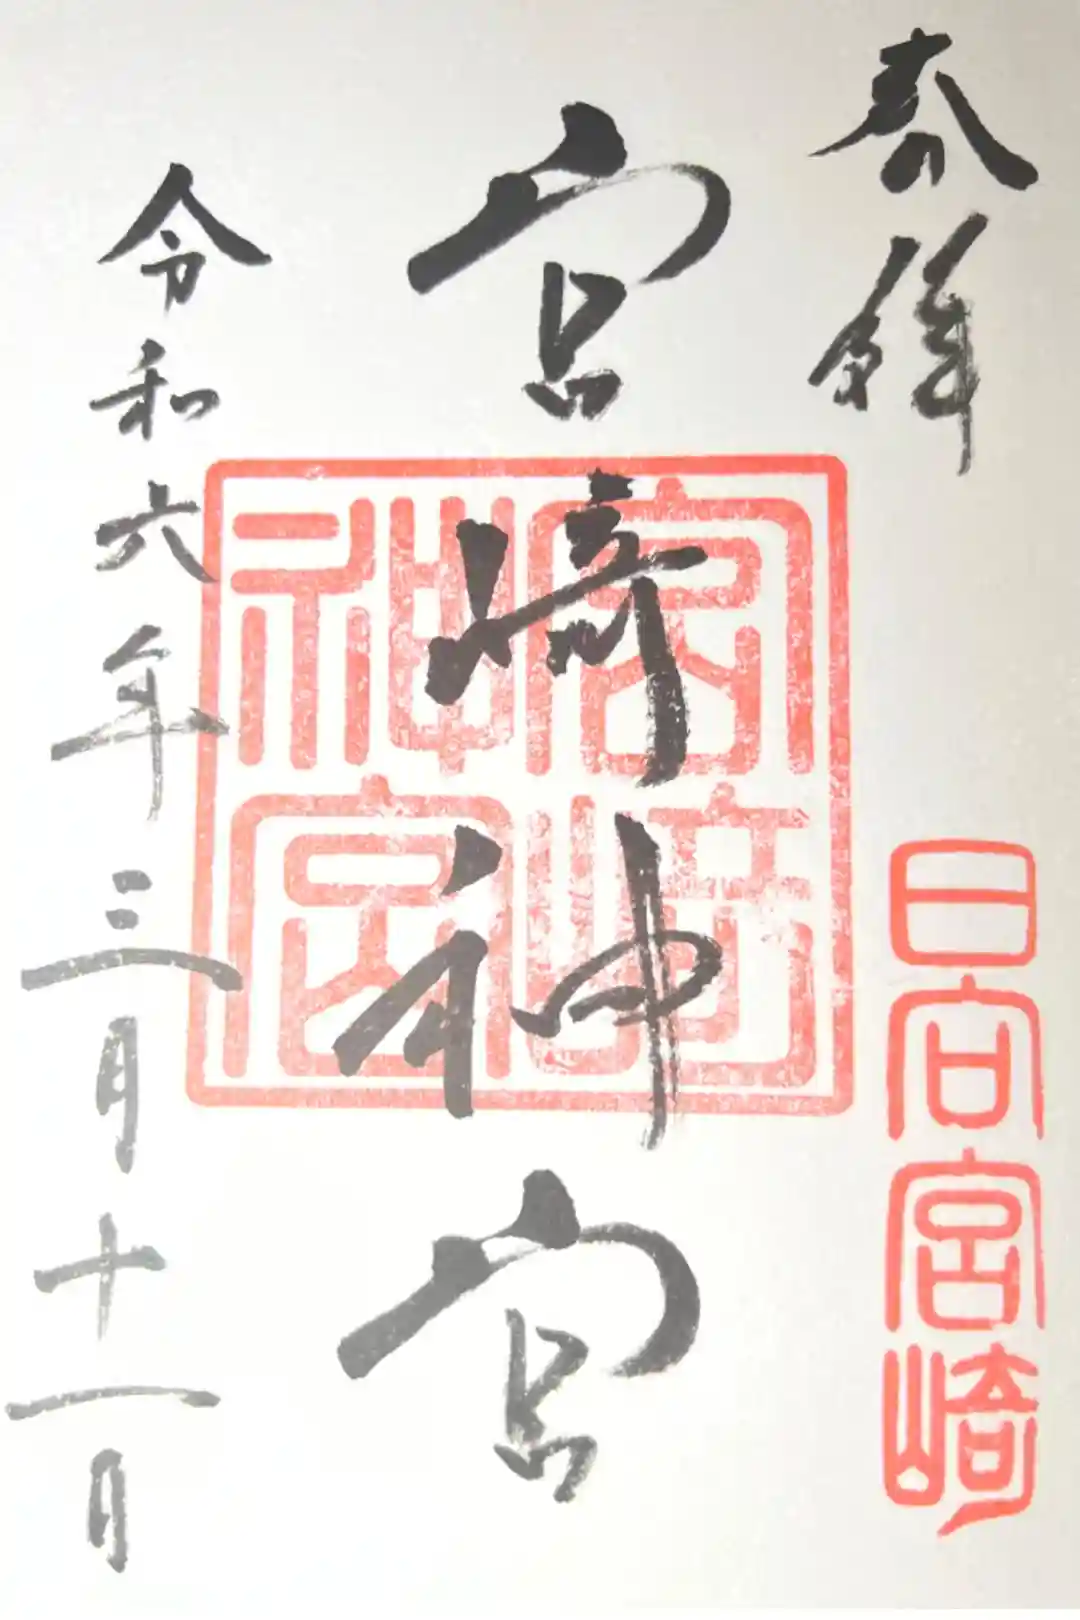 奉拝
日向宮崎
宮崎神宮
宮崎神宮
令和六年三月十一日